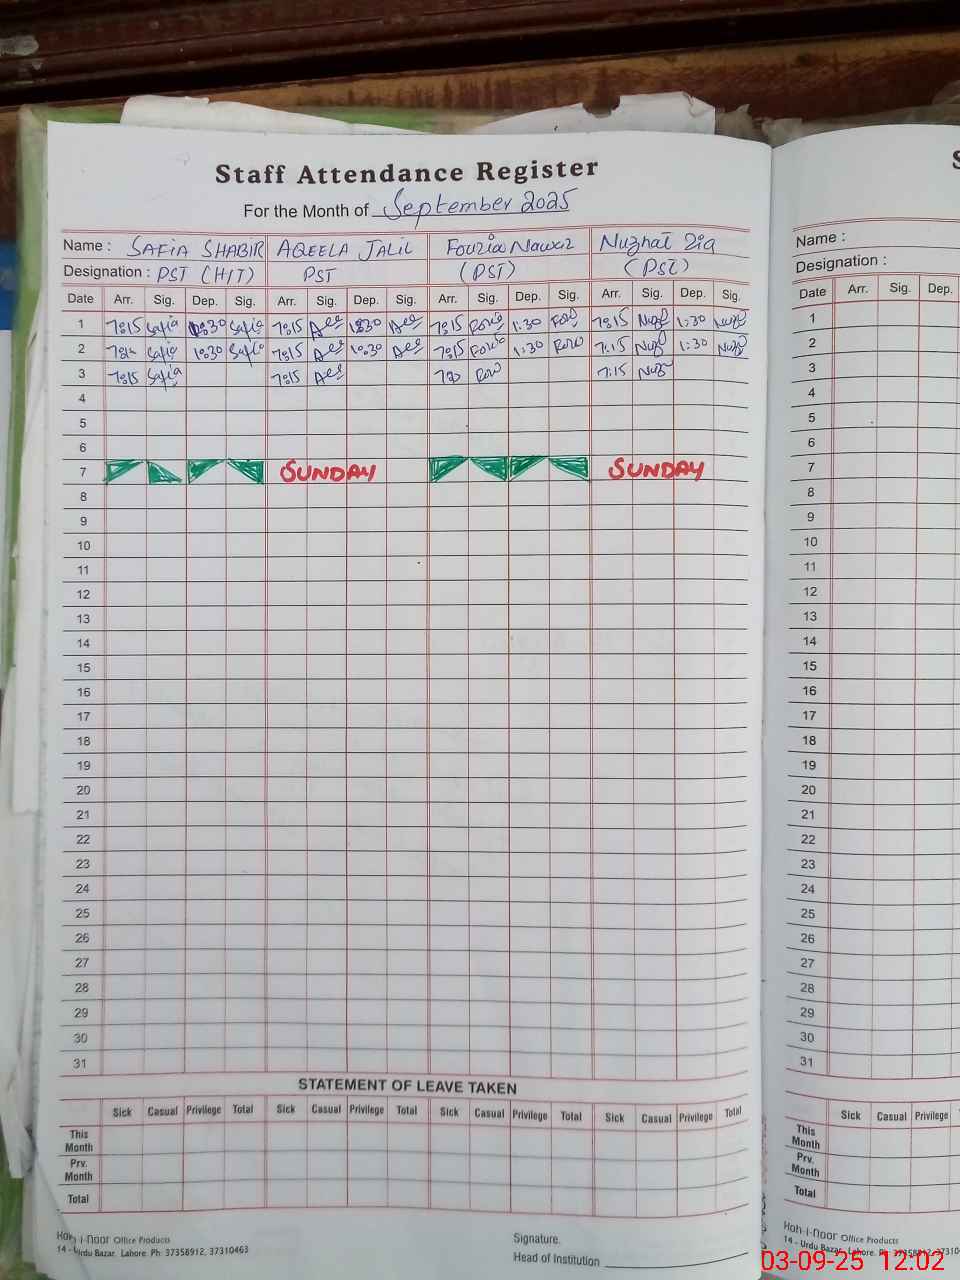 Staff Attendance Register
For the Month of September 2025
Name : SAFIA SHABIR AQEELA JALIL Fouzia Nawaz Nuzhat Zia
Designation : PST (H/T) PST (PST) (PST)
Date Arr. Sig. Dep. Sig. Arr. Sig. Dep. Sig. Arr. Sig. Dep. Sig. Arr. Sig. Dep. Sig.
1 7:15 Safia 1:30 Safia 7:15 1:30 7:15 1:30 7:15 1:30
2 Safia 1:30 Safia 7:15 1:30 7:15 1:30 7:15 1:30
3 7:15 Safia 7:15 7:15
4
5
6
7 SUNDAY SUNDAY
8
9
10
11
12
13
14
15
16
17
18
19
20
21
22
23
24
25
26
27
28
29
30
31
STATEMENT OF LEAVE TAKEN
Sick Casual Privilege Total Sick Casual Privilege Total Sick Casual Privilege Total Sick Casual Privilege Total
This Month
Prv. Month
Total
Koh-i-Noor Office Products
14 - Urdu Bazar, Lahore. Ph: 37358912, 37310463
Signature.
Head of Institution
S
Name :
Designation :
Date Arr. Sig. Dep.
1
2
3
4
5
6
7
8
9
10
11
12
13
14
15
16
17
18
19
20
21
22
23
24
25
26
27
28
29
30
31
Sick Casual Privilege
This Month
Prv. Month
Total
Koh-i-Noor Office Products
14 - Urdu Bazar, Lahore. Ph: 37358912, 37310
03-09-25 12:02